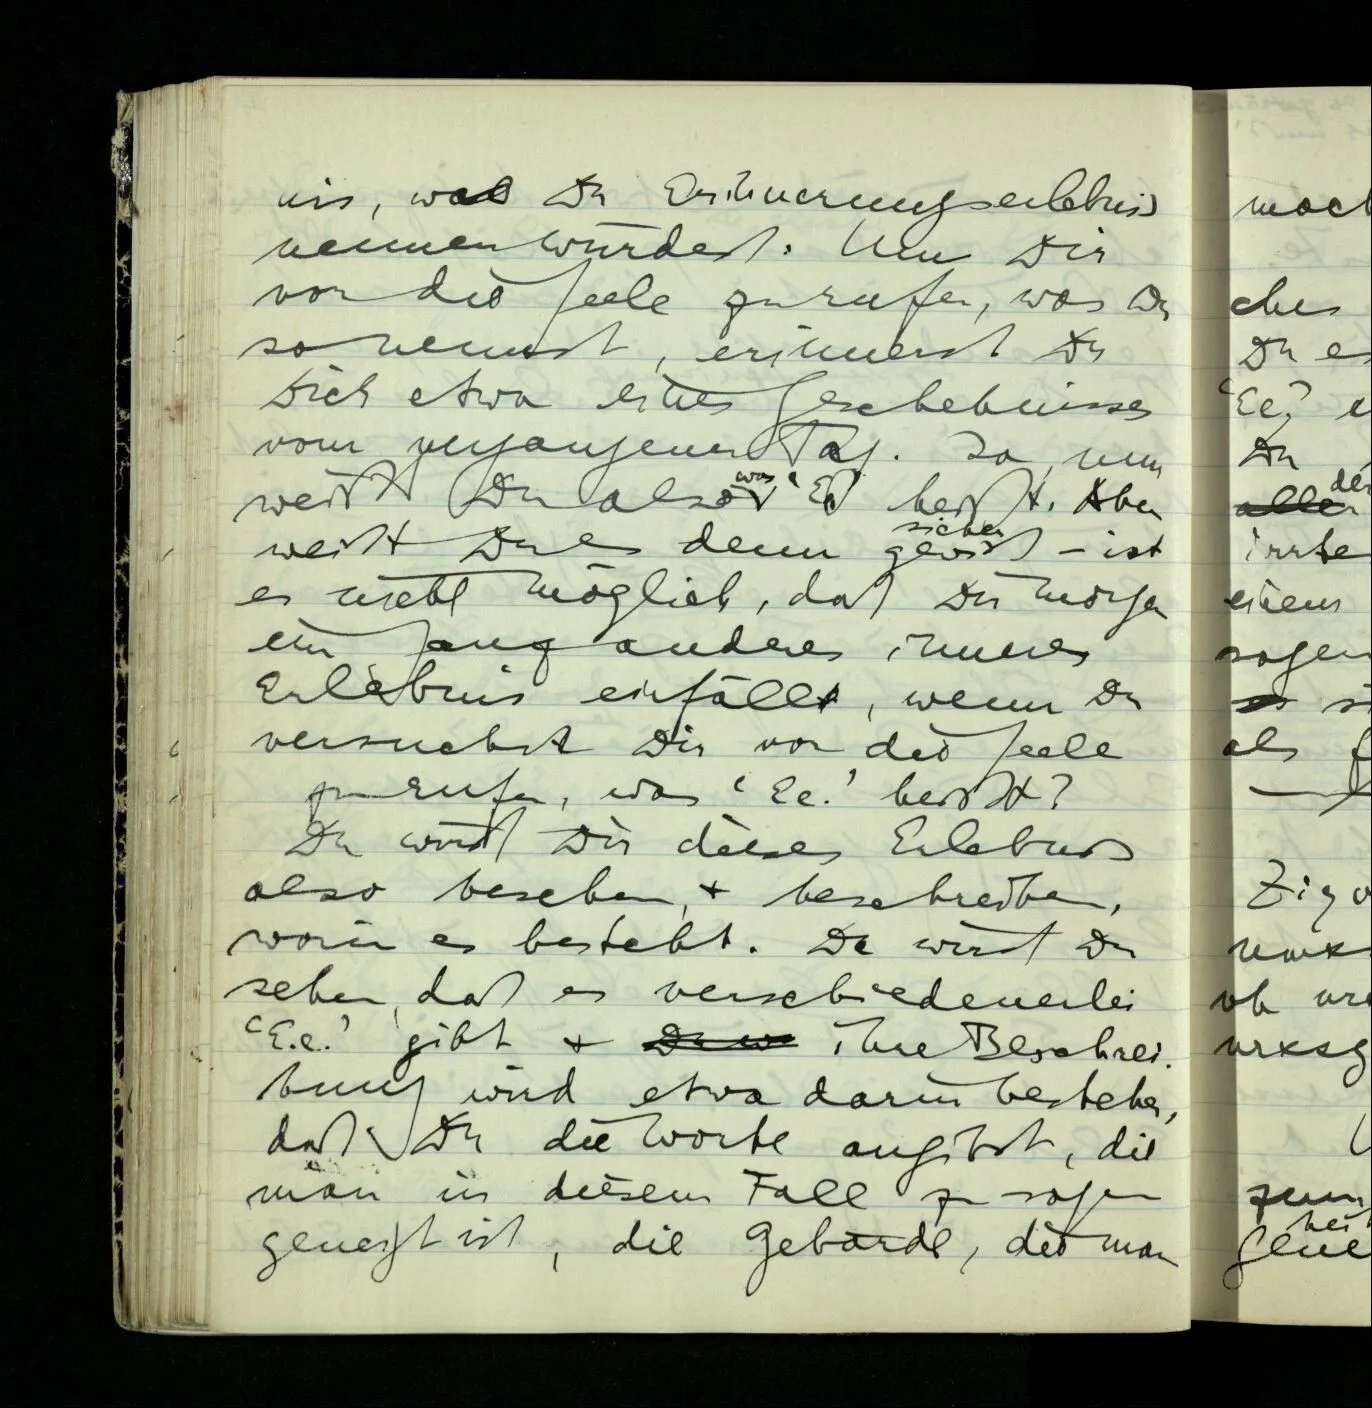 nis, was Du Erinnerungserlebnis
nennen würdest. Um Dir
vor die Seele zu rufen, was Du
so nennst, erinnerst Du
Dich etwa eines Geschehnisses
vom vergangenen Tag. So, nun
was
weißt Du also 'Ee' heißt. Aber
sicher
weißt Du es denn gewiß – ist
es nicht möglich, daß Dir morgen
ein ganz anderes inneres
Erlebnis einfällt, wenn Du
versuchst Dir vor die Seele
zu rufen, was 'Ee.' heißt?
Du wirst Dir dieses Erlebnis
also besehen, + beschreiben,
worin es besteht. Da wirst Du
sehen, daß es verschiedenerlei
'E.e.' gibt + Du w ihre Beschrei-
bung wird etwa darin bestehen,
daß Du die Worte angibst, die
man in diesem Fall zu sagen
geneigt ist, die Gebärde, die man
ches
Du
'Ee,'
Du
aller
irrte
einem
sagen
es
als
ob